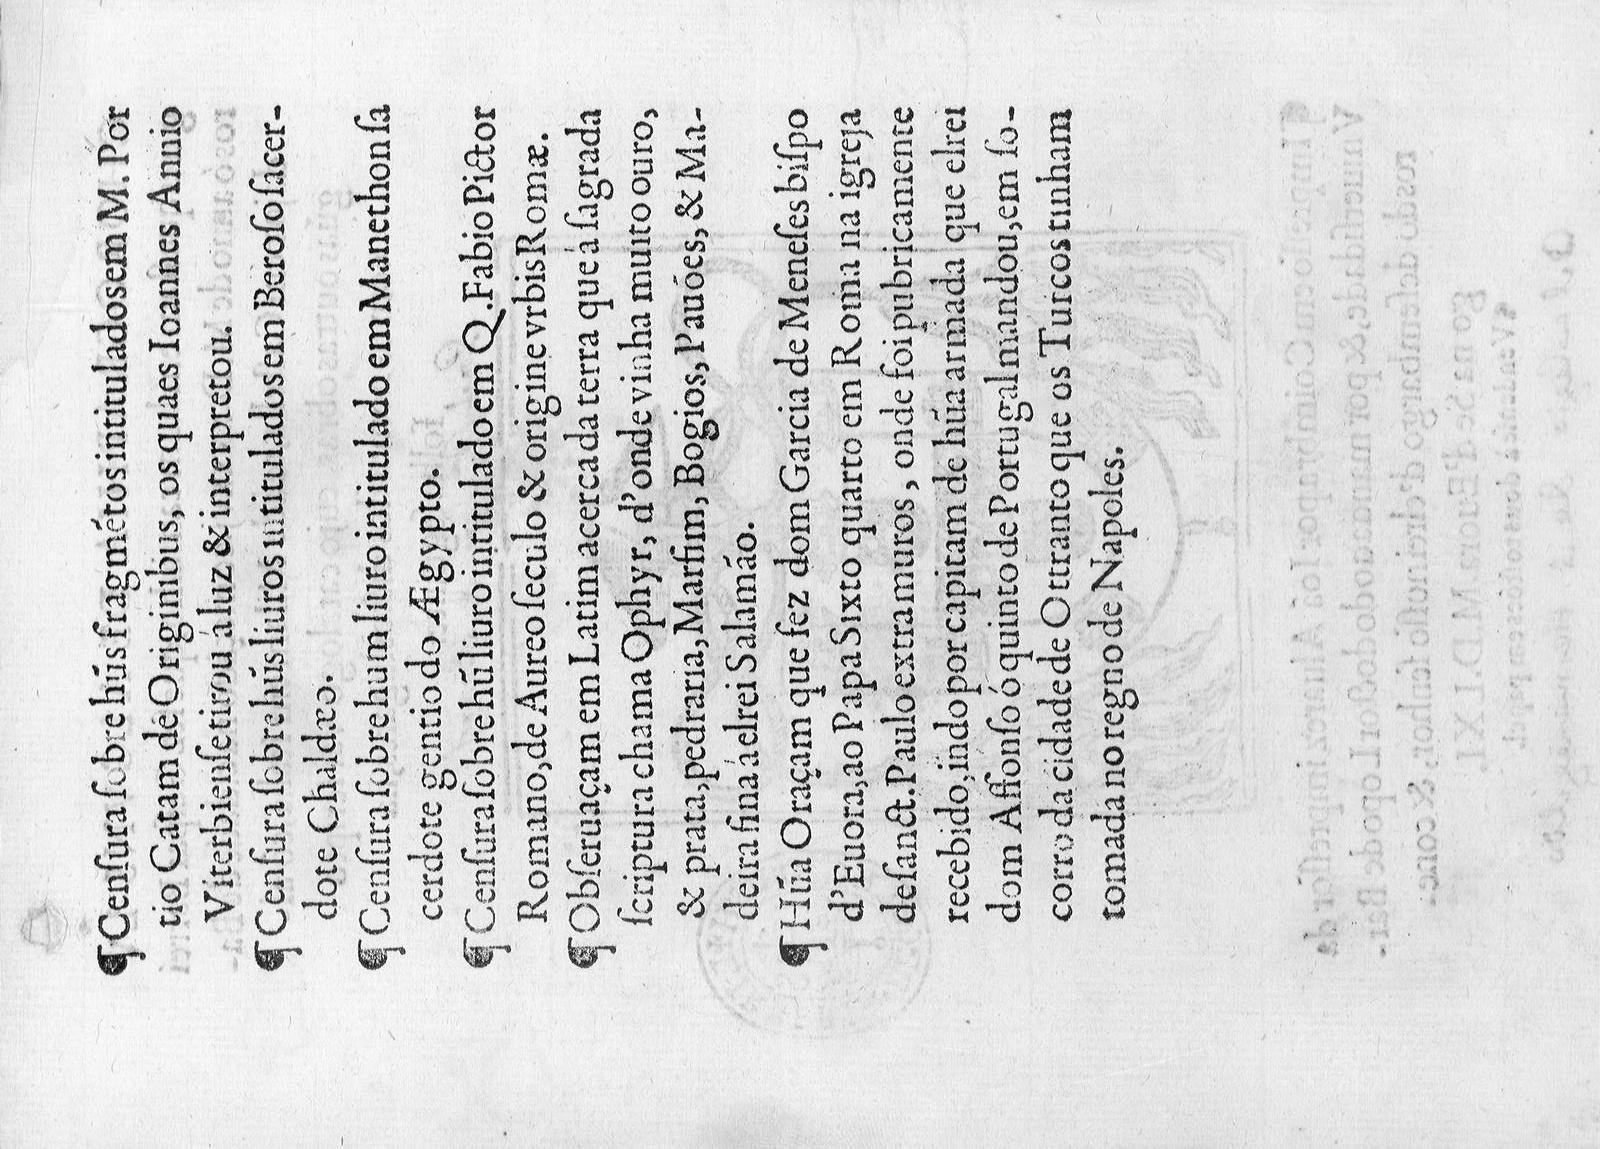 ¶Cenſura ſobre hús fragmétos intitulados em M. Por
tio Catam de Originibus, os quaes Ioannes Annio
Viterbienſe tirou á luz & interpretou.
¶Cenſura ſobre hús liuros intitulados em Beroſo ſacer-
dote Chaldæo.
¶Cenſura ſobre hum liuro intitulado em Manethon ſa
cerdote gentio do Ægypto.
¶Cenſura ſobre hú liuro intitulado em Q. Fabio Pictor
Romano, de Aureo ſeculo & origine vrbis Romæ.
¶Obſeruaçam em Latim acerca da terra que á ſagrada
ſcriptura chama Ophyr, d'onde vinha muito ouro,
& prata, pedraria, Marfim, Bogios, Pauóes, & Ma-
deira fina á elrei Salamáo.
¶Húa Oraçam que fez dom Garcia de Meneſes biſpo
d'Euora, ao Papa Sixto quarto em Roma na igreja
de ſanct. Paulo extra muros, onde foi pubricamente
recebido, indo por capitam de húa armada que elrei
dom Affonſo ó quinto de Portugal mandou, em ſo-
corro da cidade de Ottranto que os Turcos tinham
tomada no regno de Napoles.